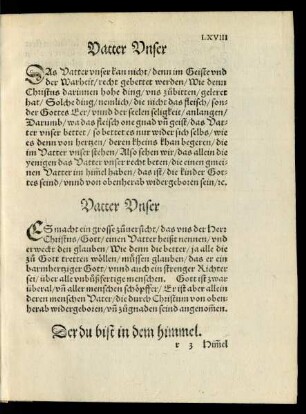 LXVIII
Vatter Vnser
DAs Vatter vnser kan nicht/ denn im Geiste vnd
der Warheit/ recht gebettet werden/ Wie denn
Christus darinnen hohe ding/ vns zůbitten/ geleret
hat/ Solche ding/ nemlich/ die nicht das fleisch/ son-
der Gottes Eer/ vnnd der seelen seligkeit/ anlangen/
Darumb/ wa das fleisch one gnad vñ geist/ das Vat-
ter vnser bettet/ so bettet es nur wider sich selbs/ wie
es denn von hertzen/ deren kheins khan begeren/ die
im Vatter vnser stehen/ Also sehen wir/ das allein die
yenigen das Vatter vnser recht beten/ die einen gmei-
nen Vatter im himel haben/ das ist/ die kinder Got-
tes seind/ vnnd von obenherab widergeboten sein/ ꝛc.
Vatter Vnser
ES macht ein grosse zůuersicht/ das vns der Herr
Christus/ Gott/ einen Vatter heißt nennen/ vnd
erweckt den glauben/ Wie denn die better/ ja alle die
zů Gott tretten wöllen/ můssen glauben/ das er ein
barmhertziger Gott/ vnnd auch ein strenger Richter
sei/ über alle vnbůßfertige menschen. Gott ist zwar
überal/ vñ aller menschen schöpffer/ Er ist aber allein
deren menschen Vater/ die durch Christum von oben
herab widergeboten/ vñ zůgnaden seind angenom̃en.
Der du bist in dem himmel.
r 3 Him̃el